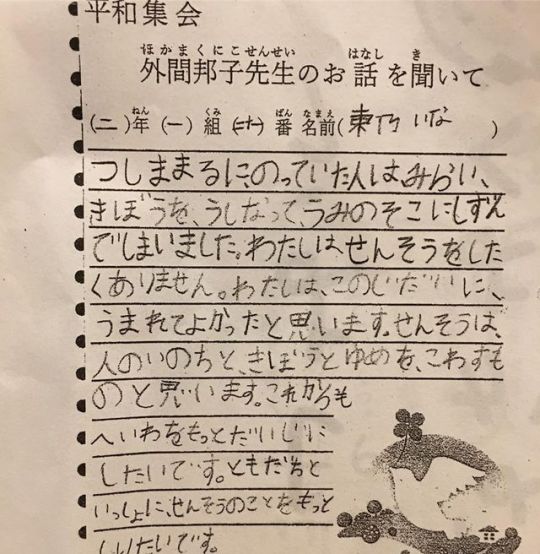 平和集会
ほかまくにこせんせい はなし き
外間邦子先生のお話を聞いて
ねん くみ ばん なまえ
(二)年(一)組(二十)番 名前(東乃 いな)
つしままるに、のっていた人は、みらい、
きぼうを、うしなって、うみのそこにしずん
でしまいました。わたしは、せんそうをした
くありません。わたしは、このじだいに、
うまれてよかったと思います。せんそうは、
人のいのちと、きぼうとゆめを、こわすも
のと思います。これからも
へいわをもっとだいじに
したいです。ともだちと
いっしょに、せんそうのことをもっと
しりたいです。